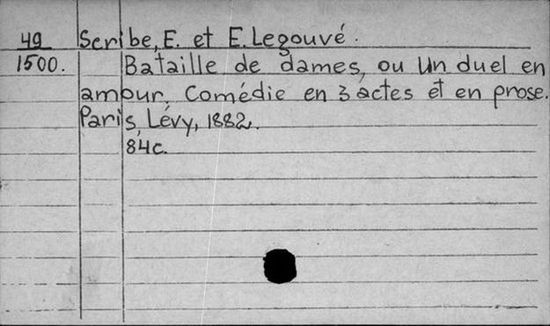 49 Scribe, E. et E. Legouvé.
1500. Bataille de dames, ou Un duel en
amour, Comédie en 3 actes et en prose.
Paris, Lévy, 1882.
84c.